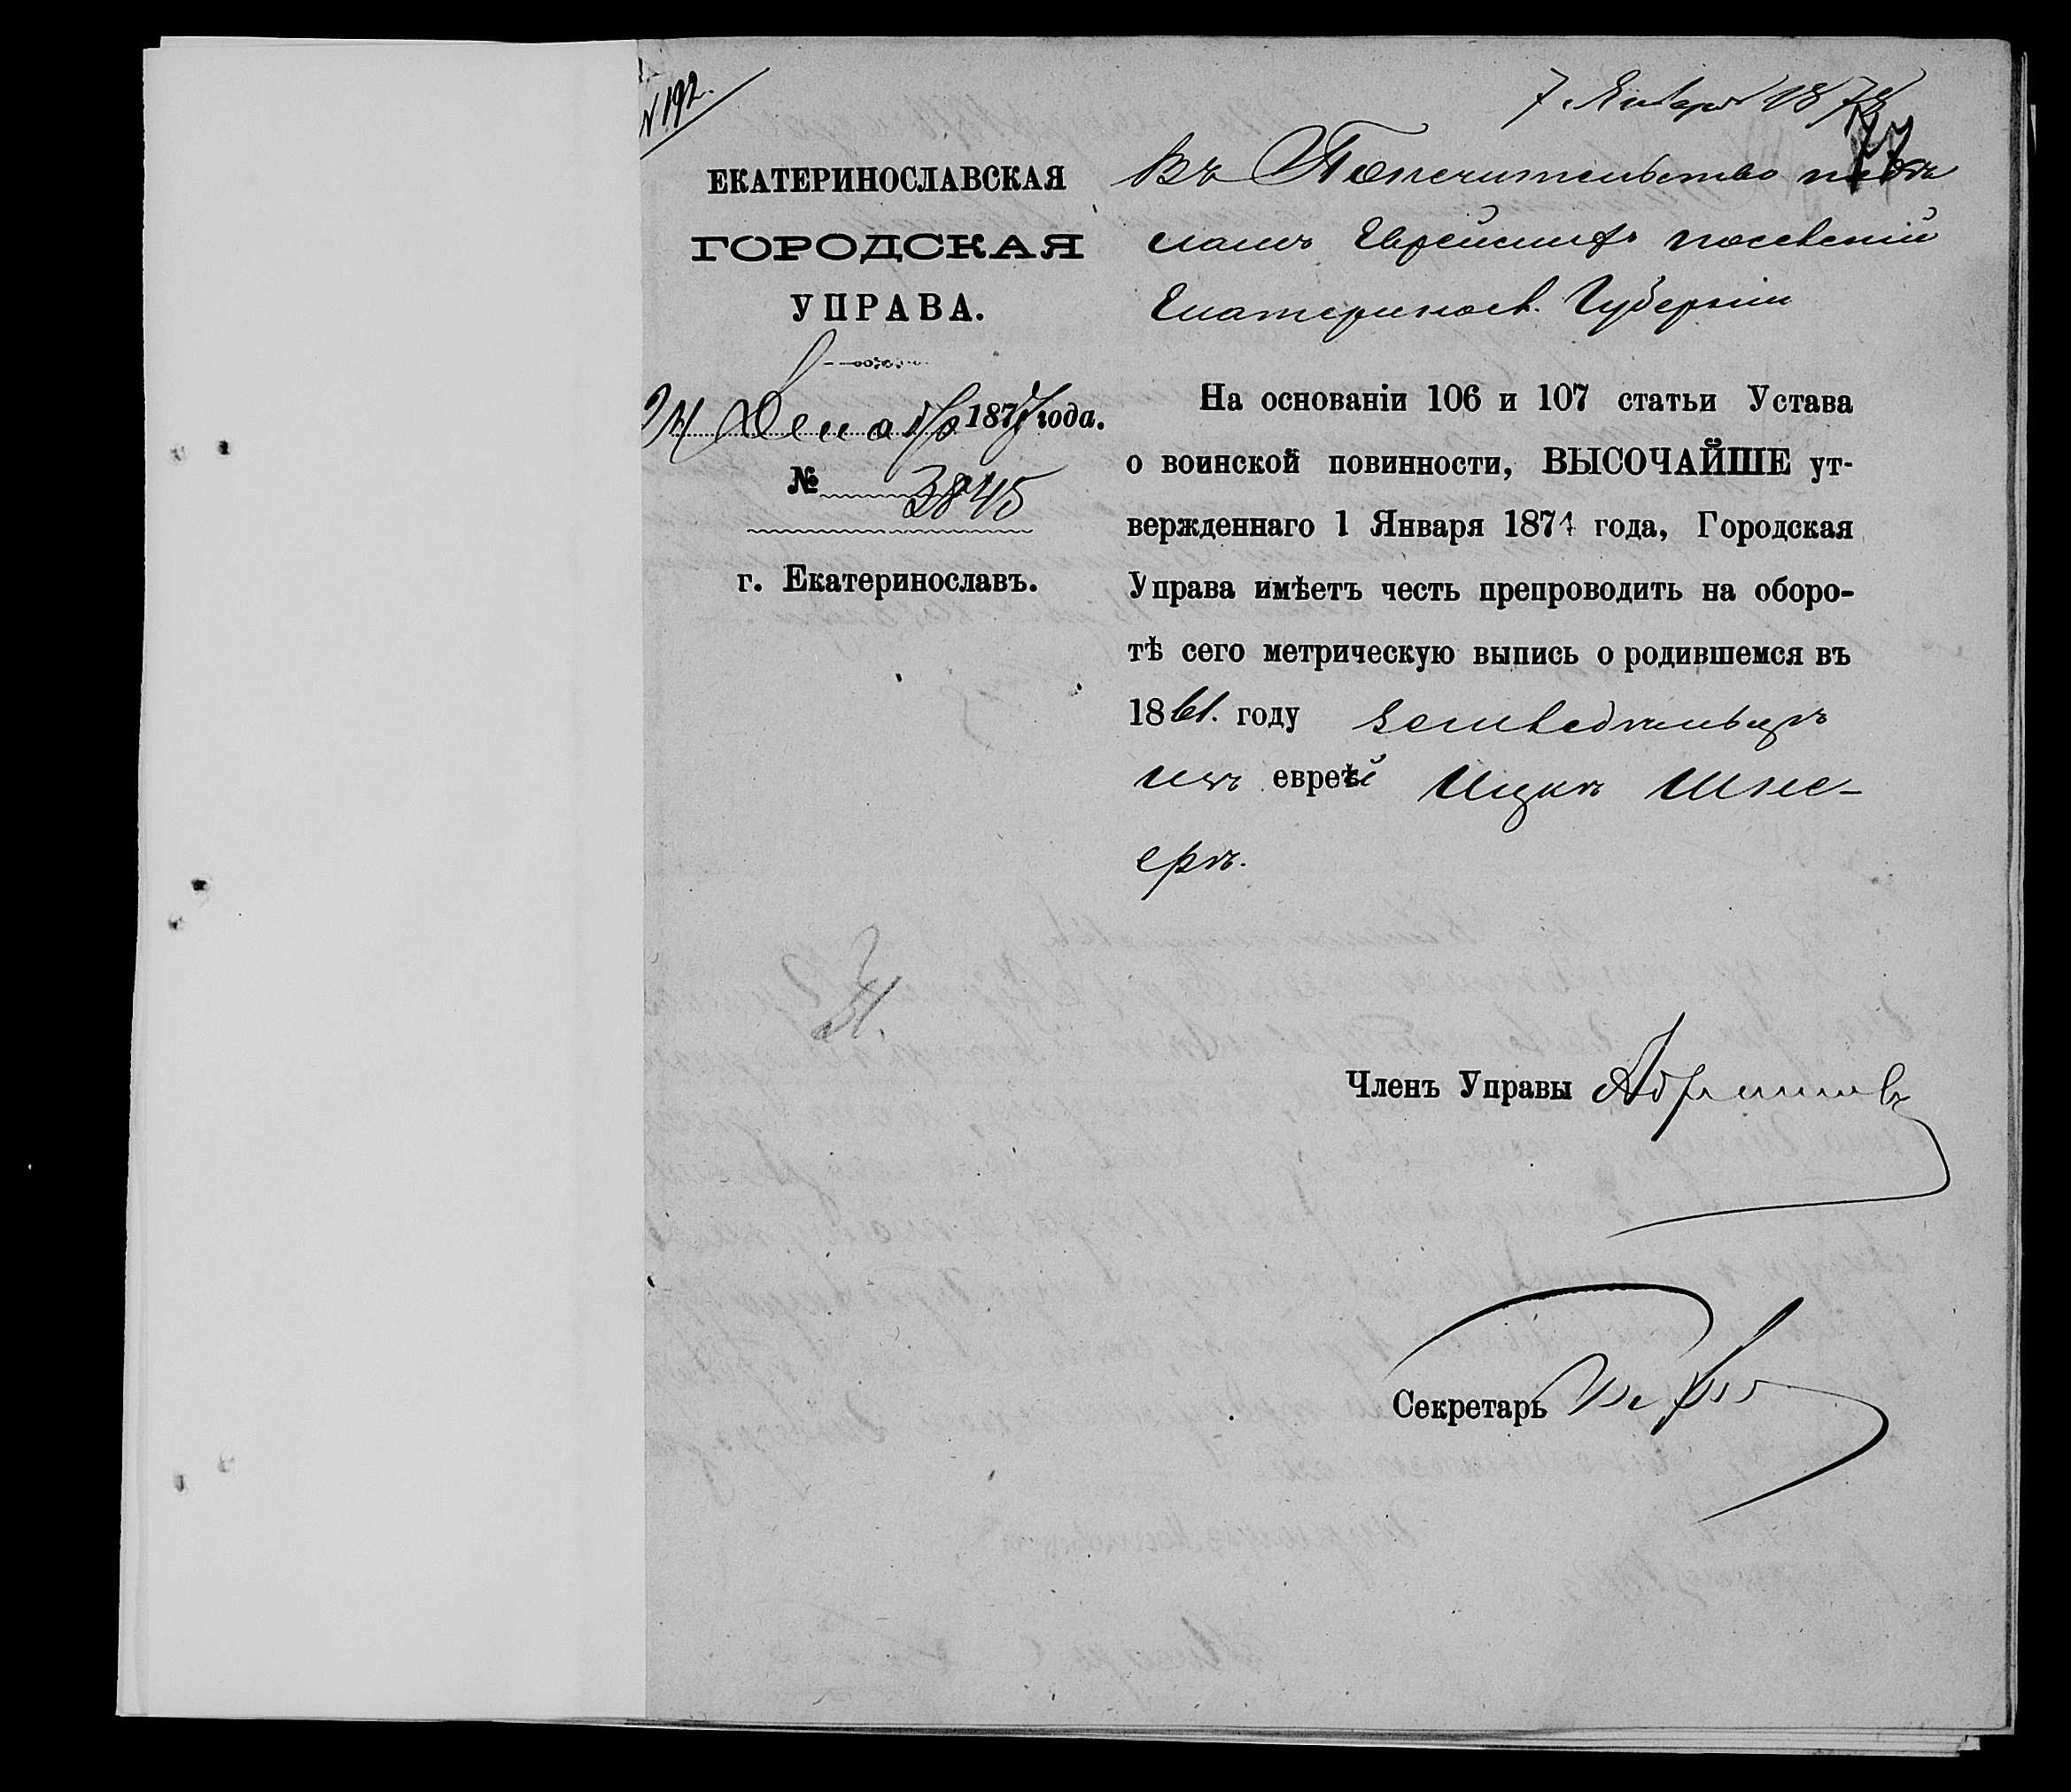 N 192.
7 Января 1878
77
ЕКАТЕРИНОСЛАВСКАЯ
ГОРОДСКАЯ
УПРАВА.
24 Декабр 1877 года.
№ 3845
г. Екатеринославъ.
Въ Попечительство надъ
нами Еврейскихъ поселеній
Екатеринослав. Губерніи
На основаніи 106 и 107 статьи Устава
о воинской повинности, ВЫСОЧАЙШЕ ут-
вержденнаго 1 Января 1874 года, Городская
Управа имѣетъ честь препроводить на оборо-
тѣ сего метрическую выпись о родившемся въ
1861. году земледѣльцѣ
изъ еврей Ицкѣ Шне-
ерѣ.
Членъ Управы
Секретарь